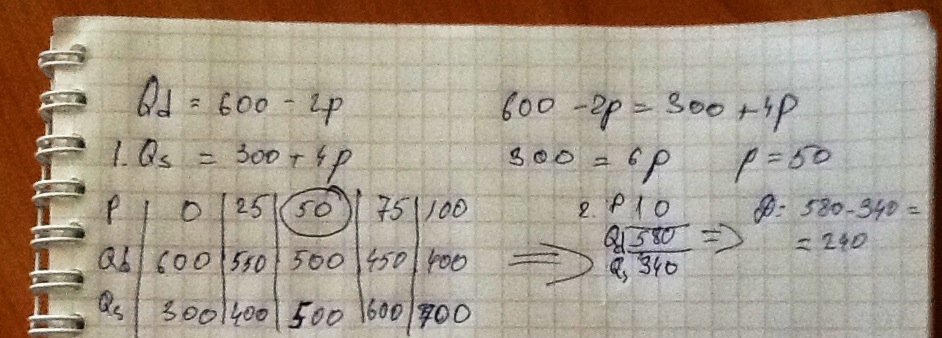 Qd = 600 - 2p
600 - 2p = 300 + 4p
1. Qs = 300 + 4p
300 = 6p p = 50
P 0 25 50 75 100
Qd 600 550 500 450 400
Qs 300 400 500 600 700
2. P 10
Qd 580
Qs 340
D = 580 - 340 =
= 240